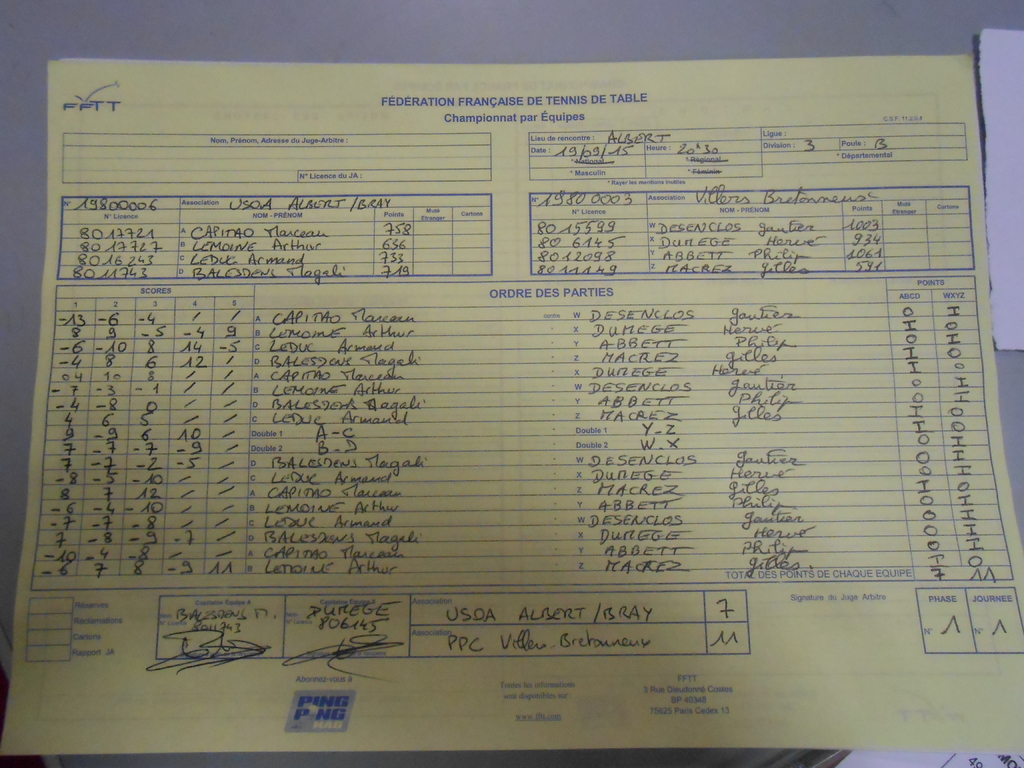 FFTT
FÉDÉRATION FRANÇAISE DE TENNIS DE TABLE
Championnat par Équipes
Nom, Prénom, Adresse du Juge-Arbitre :
N° Licence du JA :
Lieu de rencontre : ALBERT
Date : 19/09/15 Heure : 20h30
* National * Régional
* Masculin * Féminin
Ligue :
Division : 3 Poule : B
* Départemental
* Rayer les mentions inutiles
N° 19800006 Association USOA ALBERT/BRAY
N° Licence NOM - PRÉNOM Points Muté Etranger Cartons
8017721 A CAPITAO Marceau 758
8017727 B LEMOINE Arthur 636
8016243 C LEDUC Armand 733
8011743 D BALESDENS Magali 719
N° 19800003 Association Villers Bretonneux
N° Licence NOM - PRÉNOM Points Muté Etranger Cartons
8015599 W DESENCLOS gautier 1003
806145 X DUMEGE Hervé 934
8012098 Y ABBETT Philip 1061
8011149 Z MACREZ gilles 591
SCORES ORDRE DES PARTIES POINTS
1 2 3 4 5 ABCD WXYZ
-13 -6 -4 / / A CAPITAO Marceau contre W DESENCLOS gautier
8 9 -5 -4 9 B LEMOINE Arthur X DUMEGE Hervé
-6 -10 8 14 -5 C LEDUC Armand Y ABBETT Philip
-4 8 6 12 / D BALESDENS Magali Z MACREZ gilles
A CAPITAO Marceau X DUMEGE Hervé
-7 -3 -1 / / B LEMOINE Arthur W DESENCLOS gautier
-4 -8 0 / / D BALESDENS Magali Y ABBETT Philip
4 6 5 / / C LEDUC Armand Z MACREZ gilles
9 -9 6 10 / Double 1 A-C Double 1 Y-Z
7 -7 -7 -9 / Double 2 B-D Double 2 W-X
7 -7 -2 -5 / D BALESDENS Magali W DESENCLOS gautier
-8 -5 -10 / / C LEDUC Armand X DUMEGE Hervé
8 7 12 / / A CAPITAO Marceau Z MACREZ gilles
-6 -4 -10 / / B LEMOINE Arthur Y ABBETT Philip
-7 -7 -8 / / C LEDUC Armand W DESENCLOS gautier
7 -8 -9 -7 / D BALESDENS Magali X DUMEGE Hervé
-10 -4 -8 / / A CAPITAO Marceau Y ABBETT Philip
-6 7 8 -9 11 B LEMOINE Arthur Z MACREZ gilles
TOTAL DES POINTS DE CHAQUE EQUIPE 7 11
Réserves
Réclamations
Cartons
Rapport JA
BALESDENS M.
8011743
DUMEGE
806145
Association USOA ALBERT/BRAY 7
Association PPC Villers-Bretonneux 11
Signature du Juge Arbitre
PHASE JOURNEE
N° 1 N° 1
Abonnez-vous à
PING PONG MAG
Toutes les informations
sont disponibles sur
www.fftt.com
FFTT
3 Rue Dieudonné Costes
BP 40348
75625 Paris Cedex 13